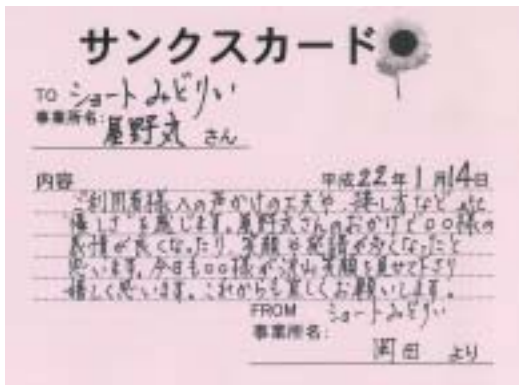 サンクスカード
TO ショートみどりい
事業所名:
星野丈 さん
内容 平成22年1月14日
ご利用者様への声かけの工夫や、接し方など
"優しさ"を感じます。星野丈さんのおかげで○○様の
表情が良くなったり、笑顔や発語が多くなったと
思います。今日も○○様が沢山笑顔を見せて下さり
嬉しく思います。これからも宜しくお願いします。
FROM ショートみどりい
事業所名:
岡田 より